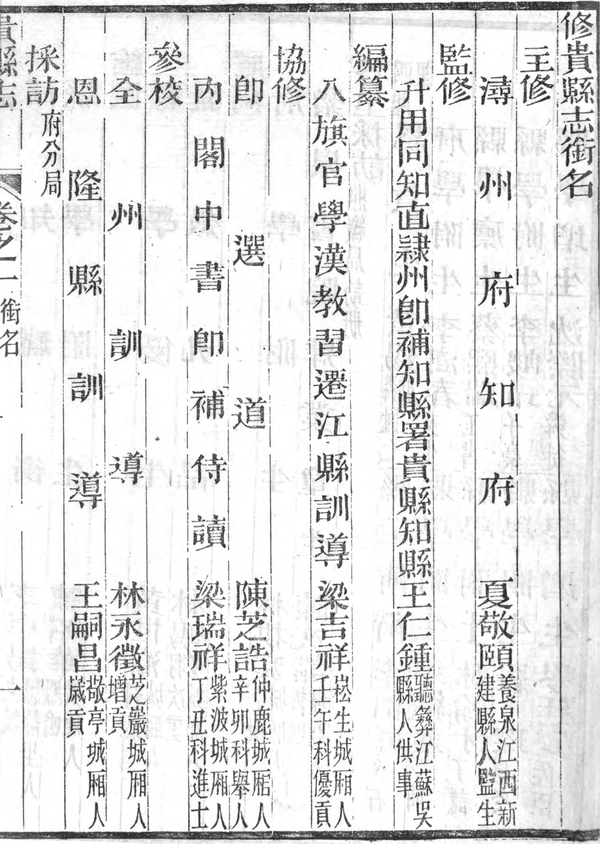 修貴縣志銜名
主修
潯州府知府夏敬頤養泉江西新建縣人監生
監修
升用同知直隸州卽補知縣署貴縣知縣王仁鍾聽彝江蘇吳縣人供事
編纂
八旗官學漢教習遷江縣訓導梁吉祥崧生城廂人壬午科優貢
協修
卽選道陳芝誥仲鹿城廂人辛卯科舉人
內閣中書卽補侍讀梁瑞祥紫波城廂人丁丑科進士
參校
全州訓導林永徵芝巖城廂人增貢
恩隆縣訓導王嗣昌敬亭城廂人歲貢
採訪府分局
貴縣志 卷之一 銜名 一